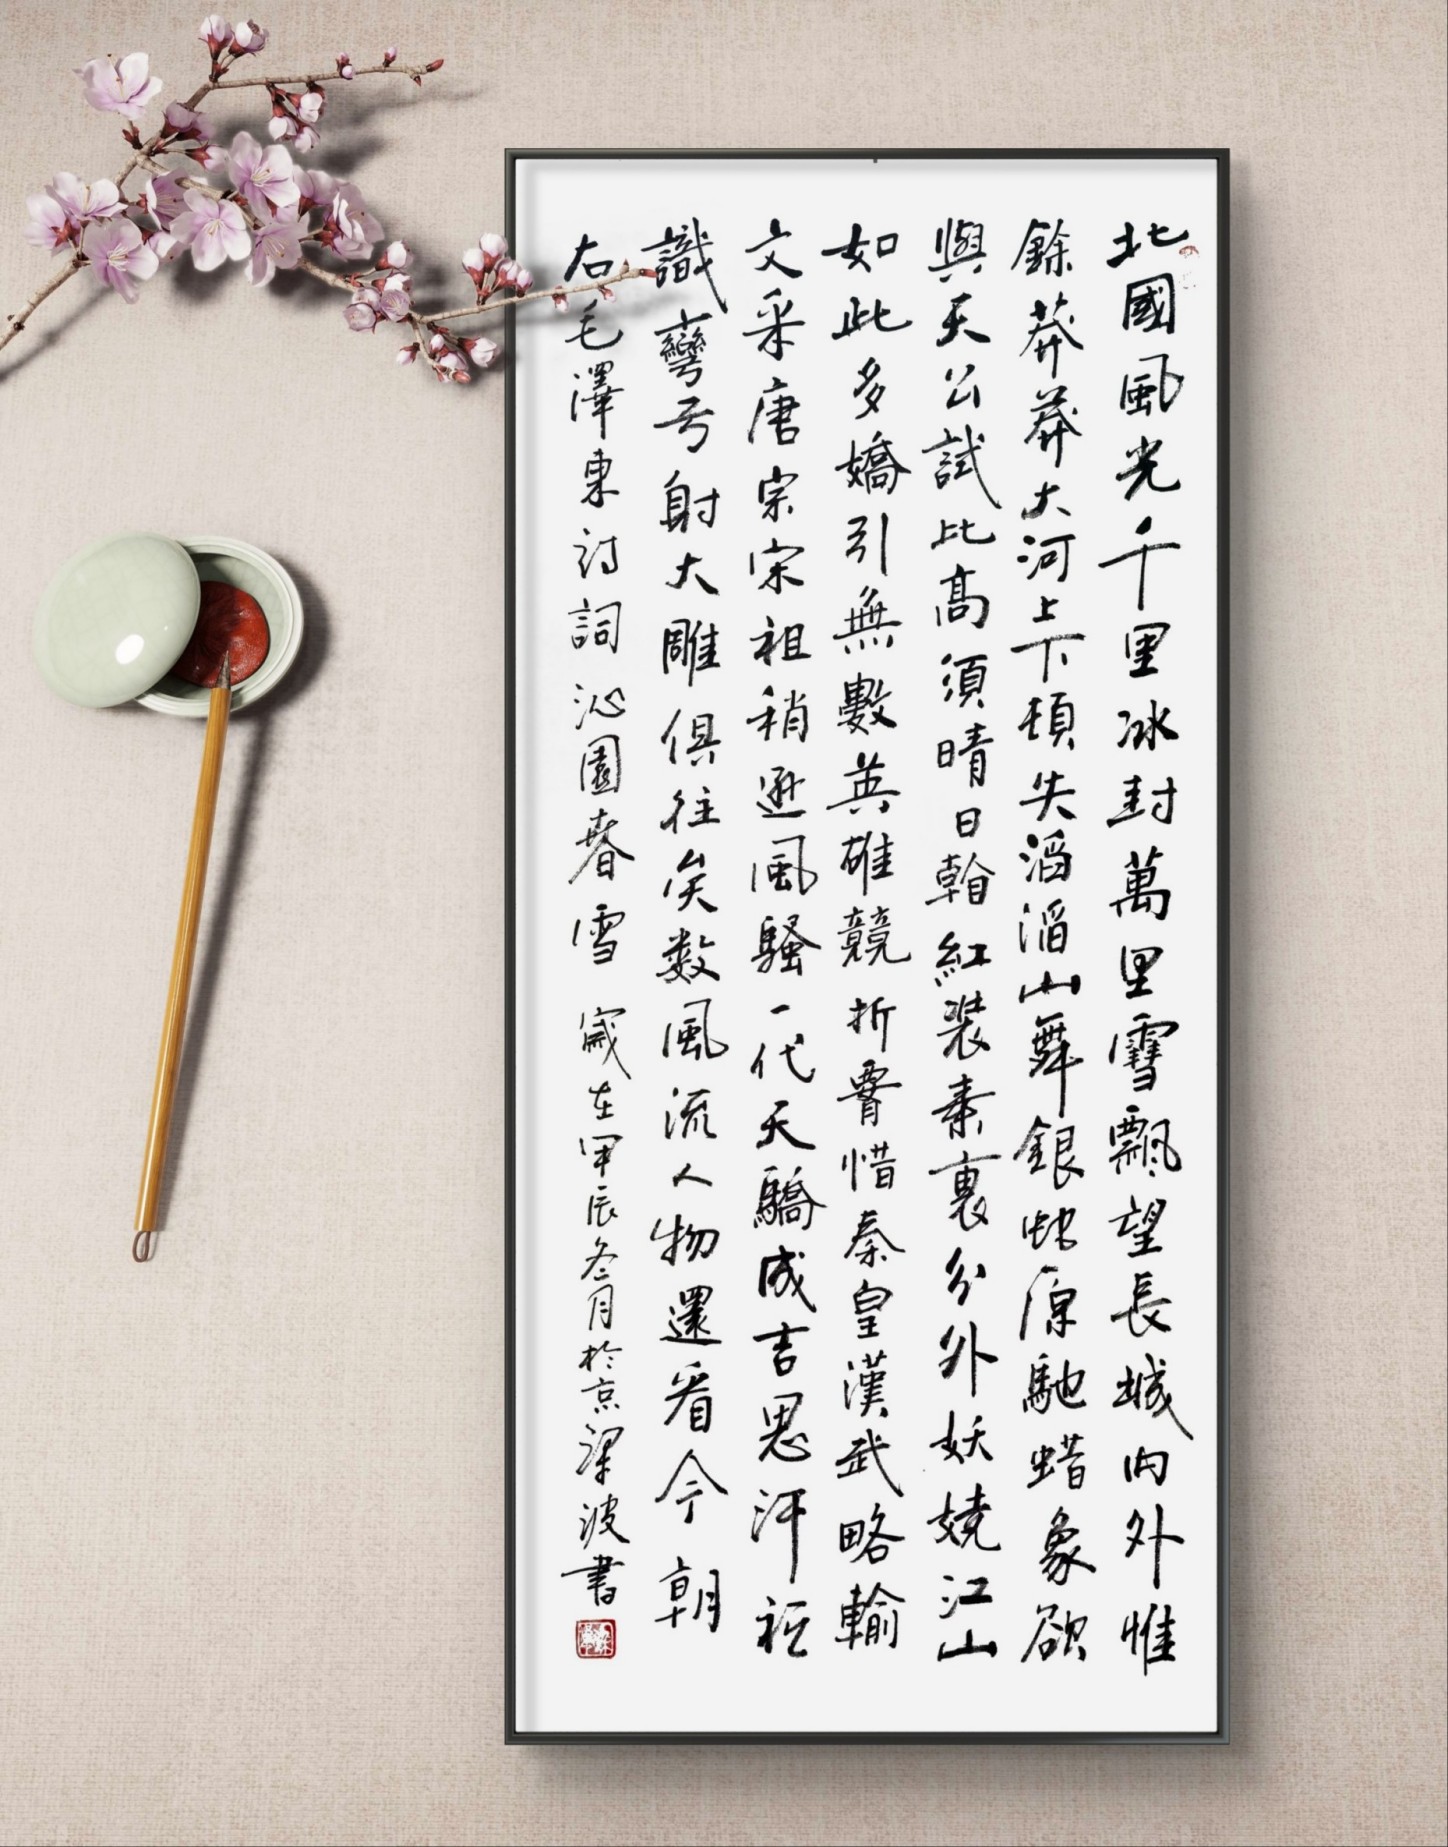 北國風光千里冰封萬里雪飄望長城内外惟
餘莽莽大河上下頓失滔滔山舞銀蛇原馳蜡象欲
與天公試比高須晴日看紅装素裹分外妖嬈江山
如此多嬌引無數英雄競折腰惜秦皇漢武略輸
文采唐宗宋祖稍遜風騷一代天驕成吉思汗衹
識彎弓射大雕俱往矣数風流人物還看今朝
右毛澤東詩詞沁園春雪 歲在甲辰冬月於京梁波書